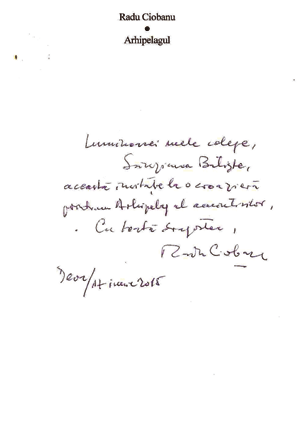 Radu Ciobanu
Arhipelagul
Luminoasei mele colege,
Sânziana Batiște,
această invitație la o croazieră
printr-un Arhipelag al amintirilor,
Cu toată dragostea,
Radu Ciobanu
Deva/14 iunie 2015